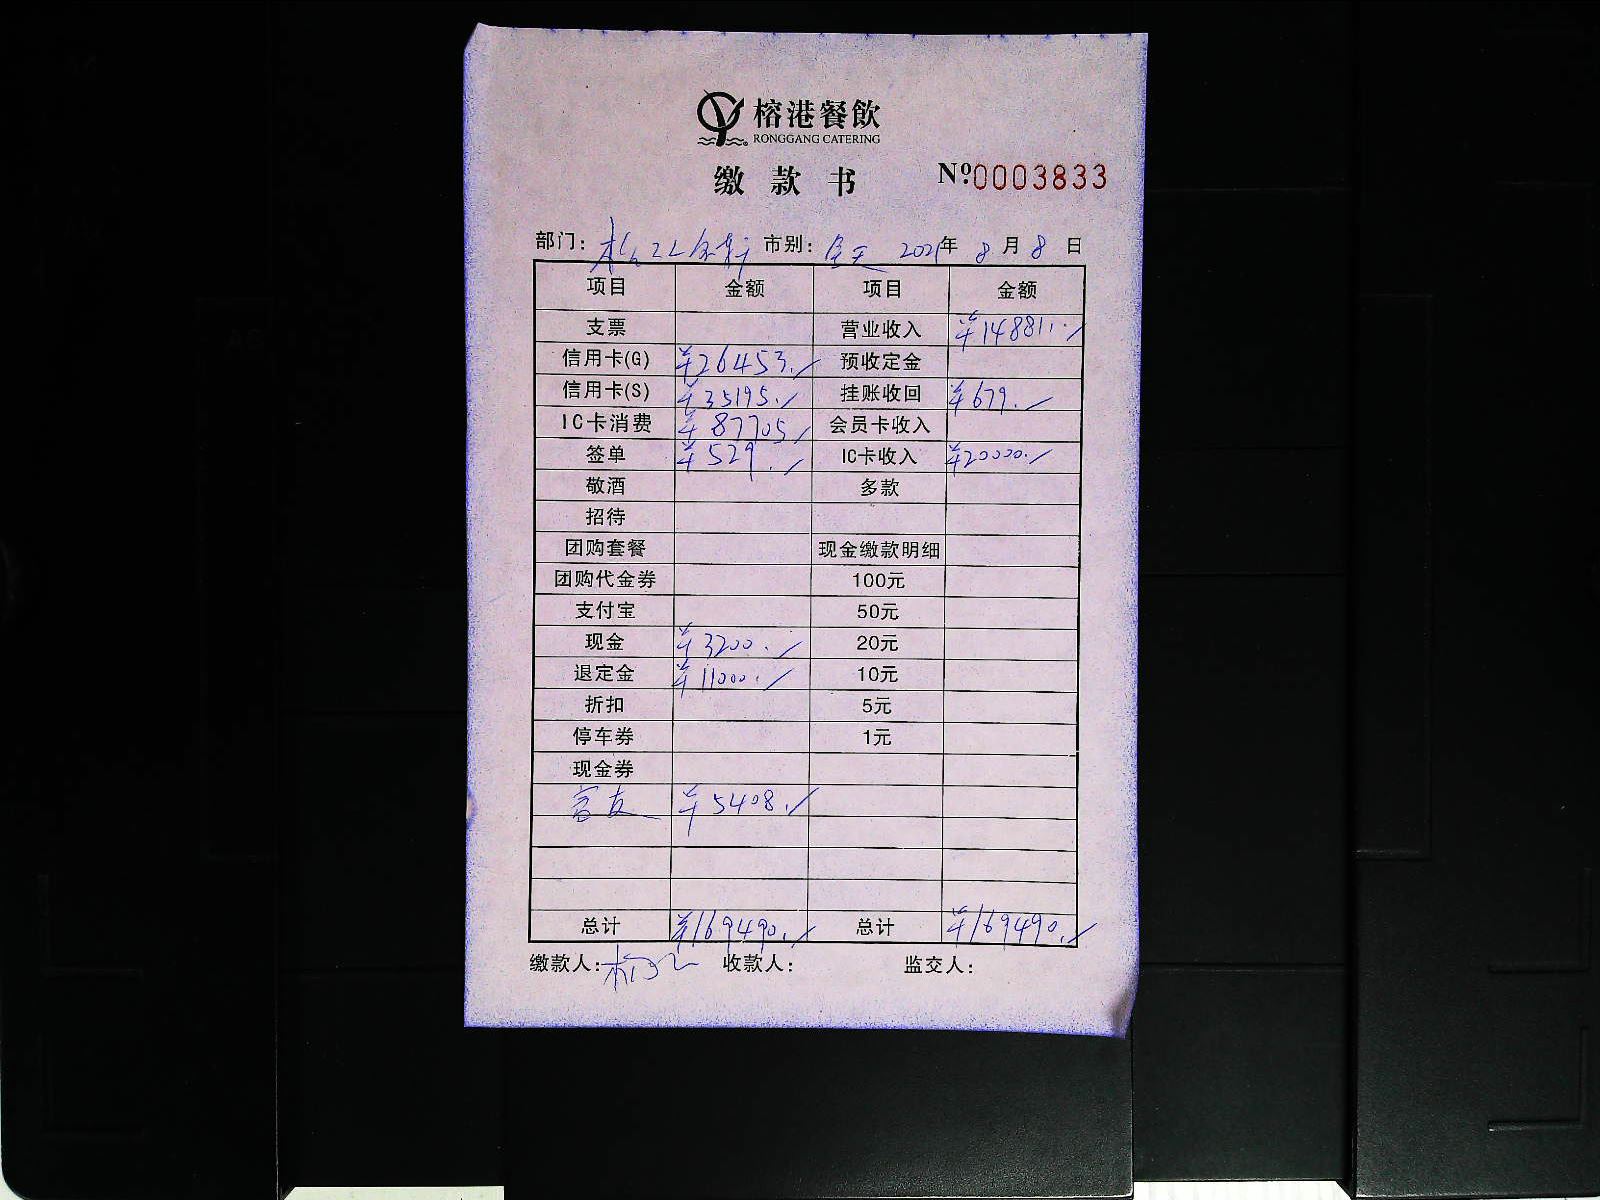 榕港餐飲
RONGGANG CATERING
缴款书 Nº:0003833
部门: 市别: 全天 2021年 8 月 8 日
项目 金额 项目 金额
支票 营业收入 ¥148811.
信用卡(G) ¥26453. 预收定金
信用卡(S) ¥35195. 挂账收回 ¥679.
IC卡消费 ¥87705 会员卡收入
签单 ¥529. IC卡收入 ¥20000.
敬酒 多款
招待
团购套餐 现金缴款明细
团购代金券 100元
支付宝 50元
现金 ¥3200. 20元
退定金 ¥11000. 10元
折扣 5元
停车券 1元
现金券
富友 ¥5408.
总计 ¥169490. 总计 ¥169490.
缴款人: 收款人: 监交人: